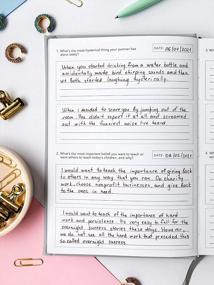 1. What's the most hysterical thing your partner has done lately?
DATE: 06/04/2021
When you started drinking from a water bottle and
accidentally made bird chirping sounds and then
we both started laughing hysterically
When I wanted to scare you by jumping out of the
room. You didn't expect it at all and screamed
out with the funniest noise I've heard
2. What's the most important belief you want to teach or
want others to teach today's children, and why?
DATE: 06/05/2021
I would want to teach the importance of giving back
to others in any way that you can. Do charity
work, choose nonprofit businesses, and give back
to the ones in need
I would want to teach of the importance of hard
work and persistence. It's very easy to fall for the
overnight success stories these days. However,
we do not see all the hard work that preceded this
so called overnight success.